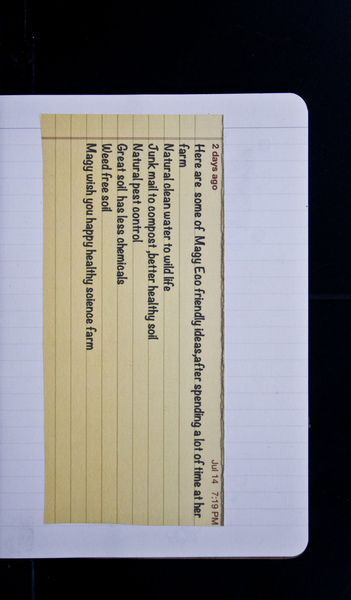 2 days ago Jul 14 7:19 PM
Here are some of Magy Eco friendly ideas,after spending a lot of time at her
farm
Natural clean water to wild life
Junk mail to compost ,better healthy soil
Natural pest control
Great soil has less chemicals
Weed free soil
Magy wish you happy healthy science farm